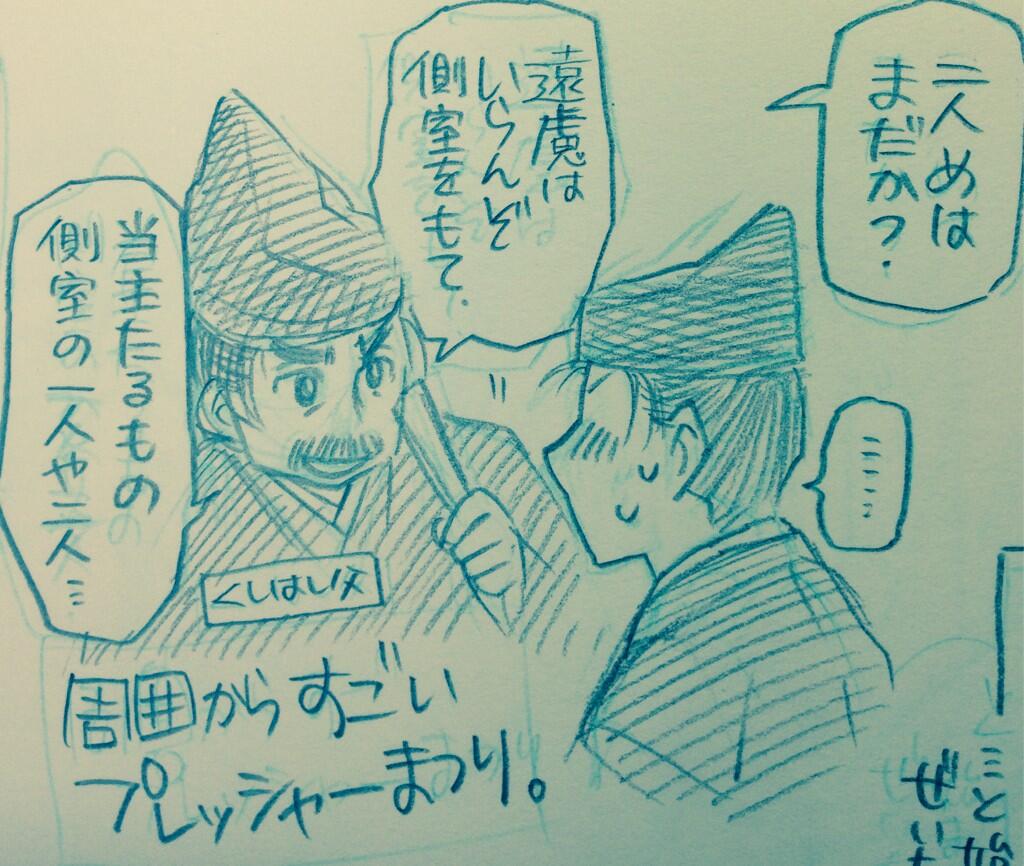 二人めは
まだか？
遠慮は
いらんぞ
側室をもて.
当主たるもの
側室の一人や二人…
くしはし父
周囲からすごい
プレッシャーまつり。